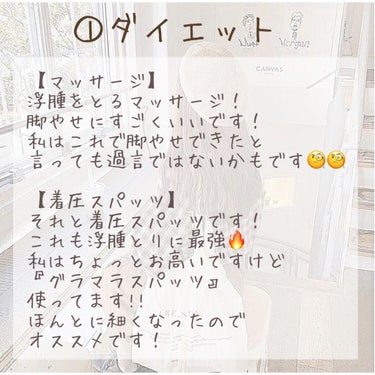 ①ダイエット
Morgan
CANVAS
【マッサージ】
浮腫をとるマッサージ！
脚やせにすごくいいです！
私はこれで脚やせできたと
言っても過言ではないかもです🧐🧐
【着圧スパッツ】
それと着圧スパッツです！
これも浮腫とりに最強🔥
私はちょっとお高いですけど
『グラマラスパッツ』
使ってます!!
ほんとに細くなったので
オススメです！